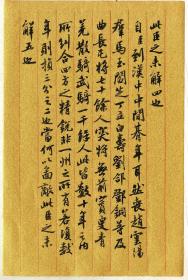 此臣之未解四也
自臣到漢中中間朞年耳然喪趙雲陽
羣馬玉閻芝丁立白壽劉郃鄧銅等及
曲長屯將七十餘人突將無前賨叟青
羌散騎武騎一千餘人此皆數十年之內
所糾合四方之精銳非一州之所有若復數
年則損三分之二也當何以圖敵此臣之未
解五也